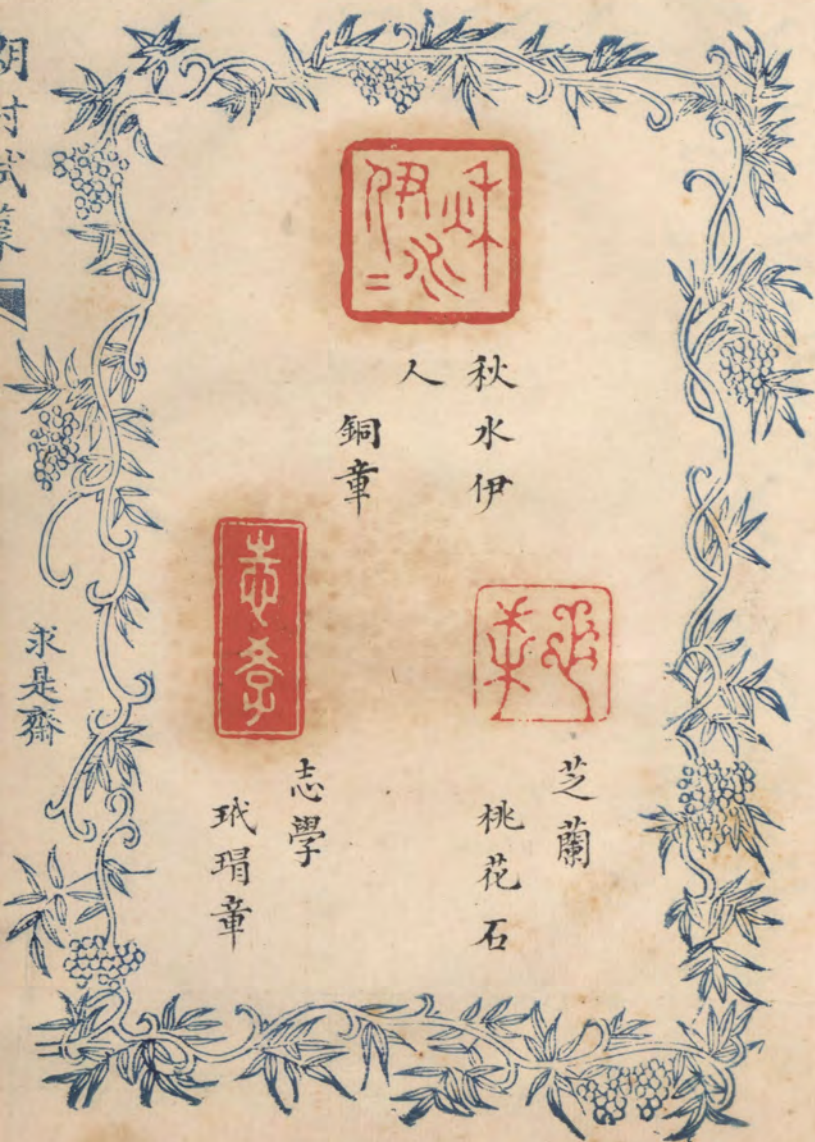 秋水伊
人
銅章
芝蘭
桃花石
志學
玳瑁章
求是齋